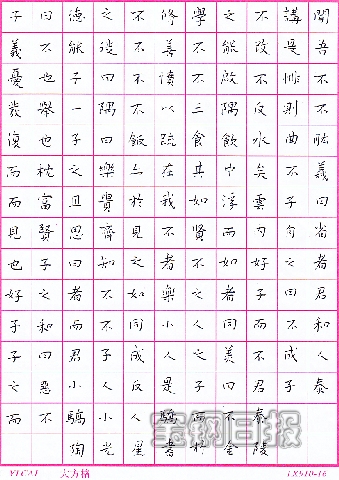 子曰德之不修學之不講聞
義不能徙不善不能改是吾
憂也子曰不憤不啟不悱不
發舉一隅不以三隅反則不
復也子曰飯疏食飲水曲肱
而枕之樂亦在其中矣不義
而富且貴於我如浮雲子曰
見賢思齊見不賢而內自省
也子曰知之者不如好之者
好之者不如樂之者子曰君
子和而不同小人同而不和
子曰君子成人之美不成人
之惡小人反是子曰君子泰
而不驕小人驕而不泰
陶光星書於金陵
宝钢日报
YLCAI 六方格